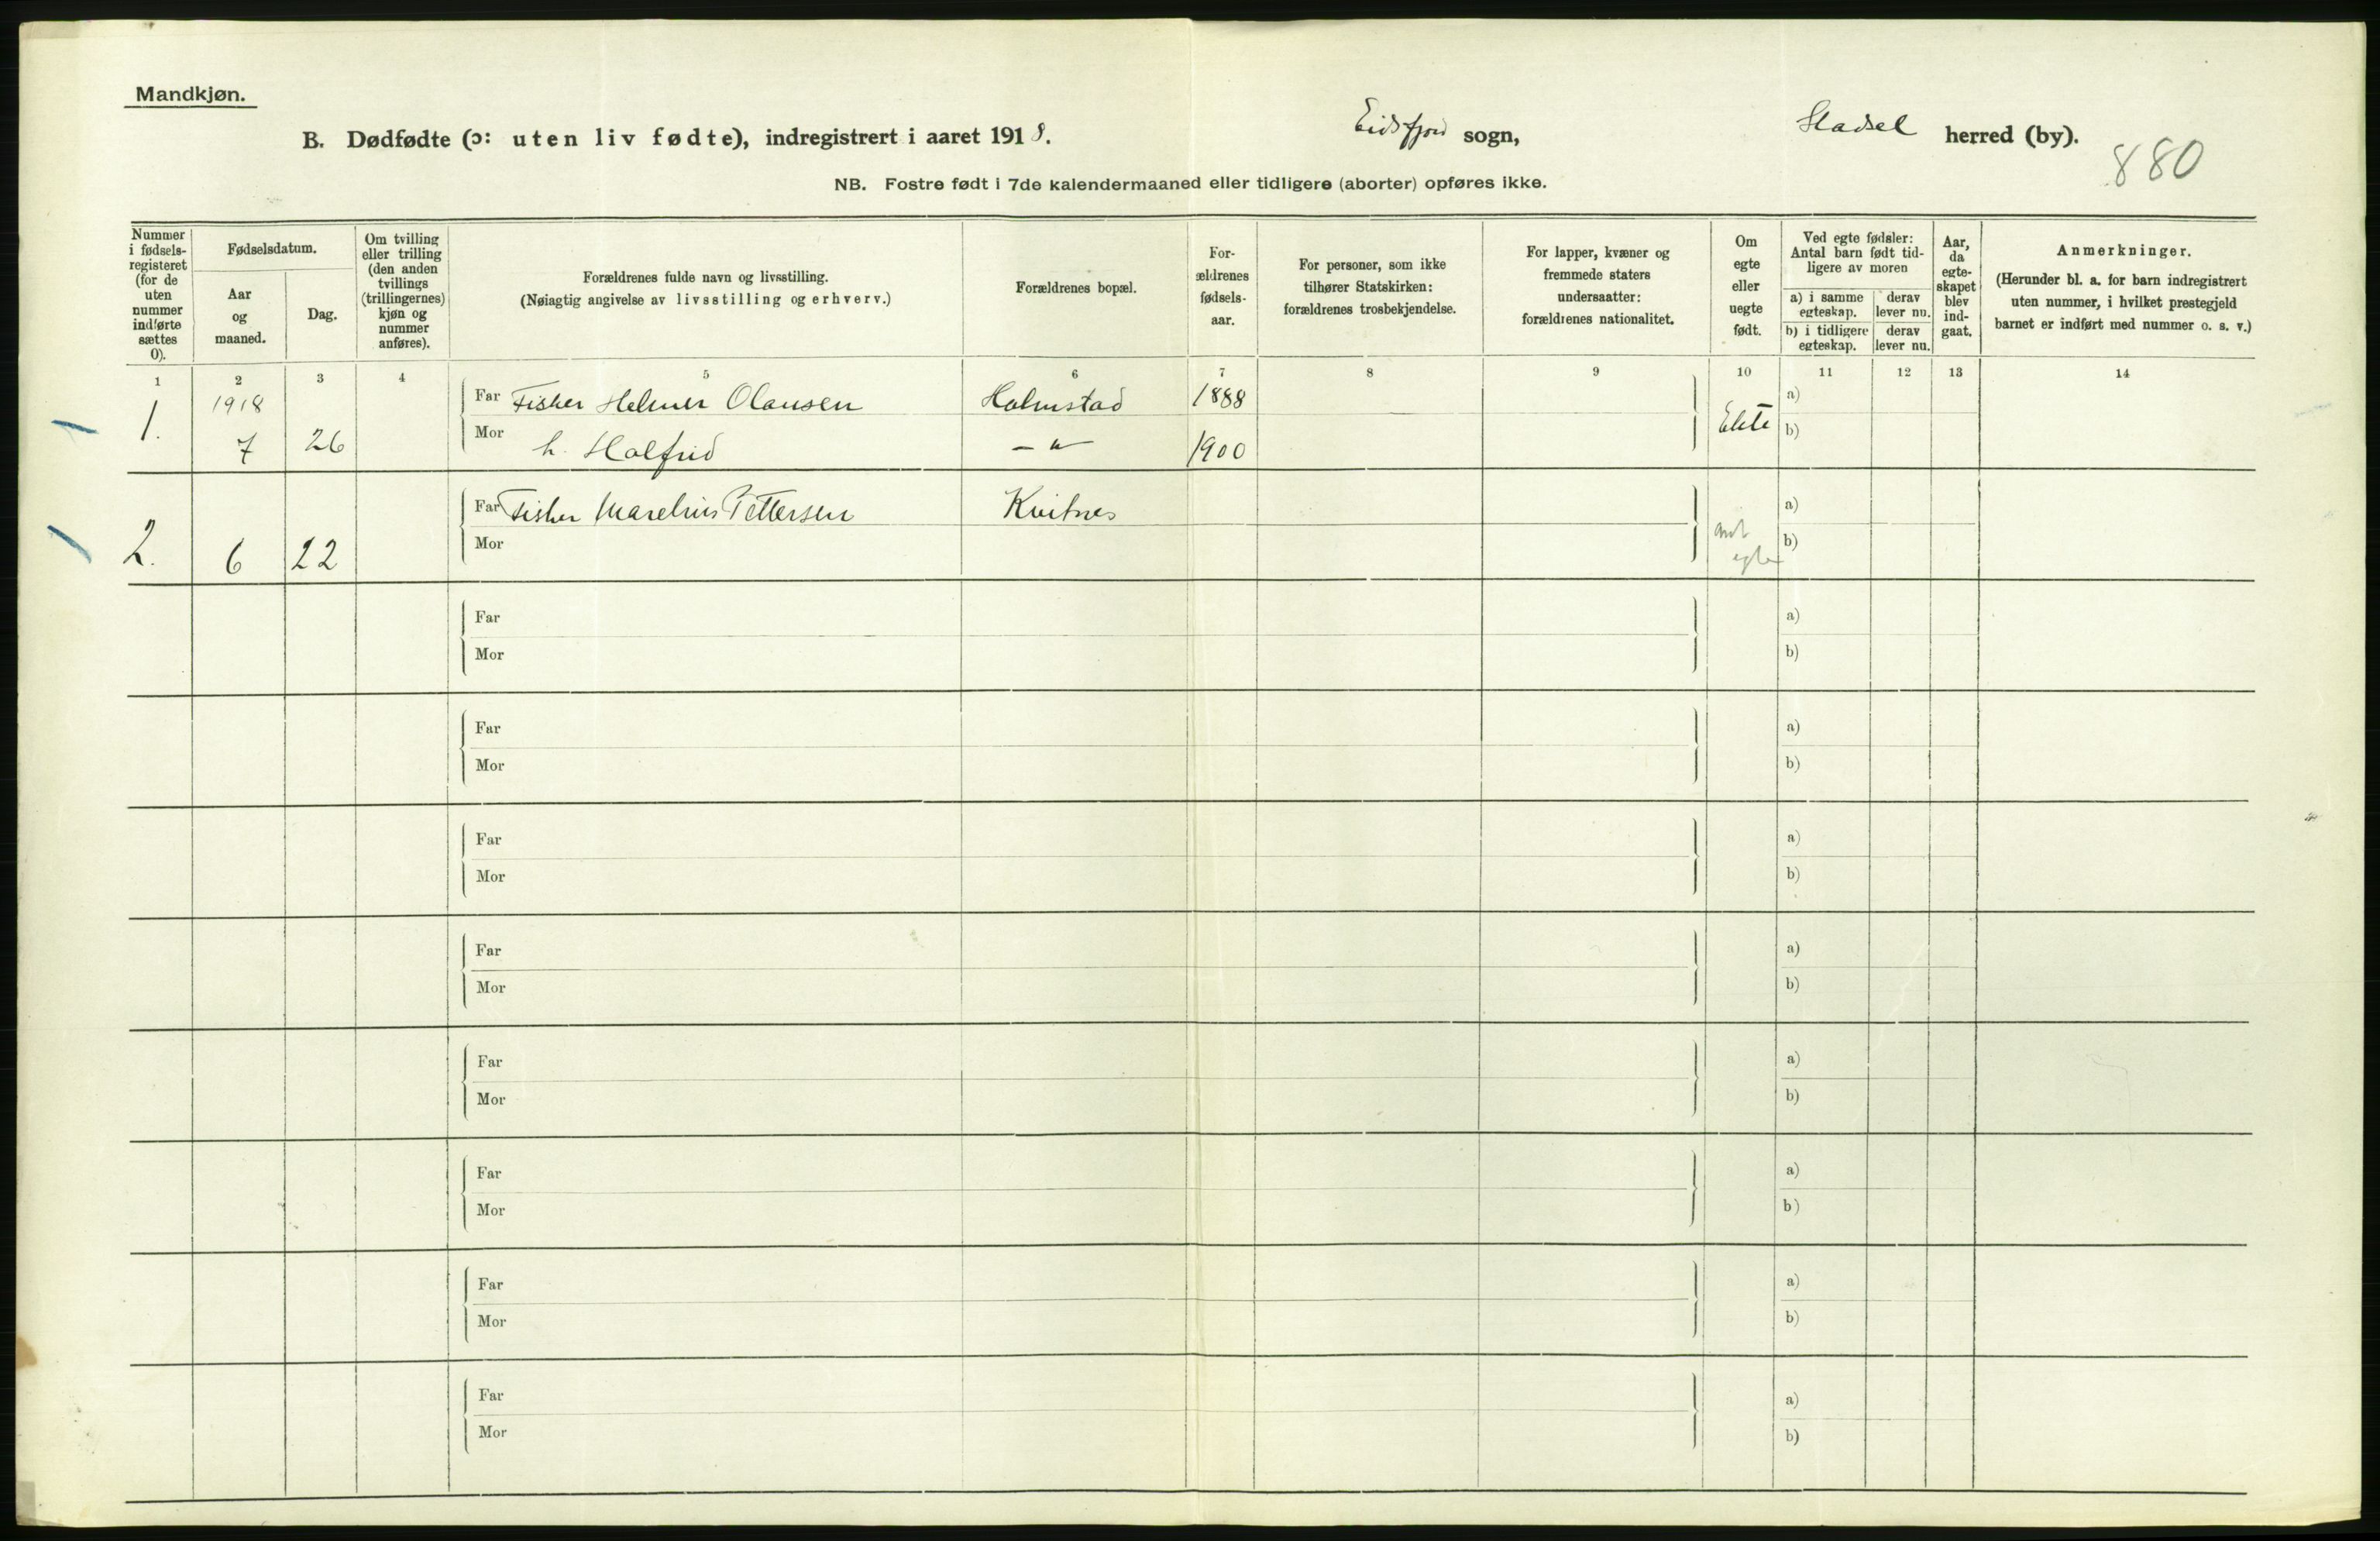 Mandkjøn.
B. Dødfødte (ɔ: uten liv fødte), indregistrert i aaret 1918. Eidsfjord sogn, Hadsel herred (by).
880
NB. Fostre født i 7de kalendermaaned eller tidligere (aborter) opføres ikke.
Nummer i fødsels-registeret (for de uten nummer indførte sættes 0).
Fødselsdatum.
Aar og maaned.
Dag.
Om tvilling eller trilling (den anden tvillings (trillingernes) kjøn og nummer anføres).
Forældrenes fulde navn og livsstilling.
(Nøiagtig angivelse av livsstilling og erhverv.)
Forældrenes bopæl.
For-ældrenes fødsels-aar.
For personer, som ikke tilhører Statskirken: forældrenes trosbekjendelse.
For lapper, kvæner og fremmede staters undersaatter: forældrenes nationalitet.
Om egte eller uegte født.
Ved egte fødsler: Antal barn født tid-ligere av moren
a) i samme egteskap. derav lever nu.
b) i tidligere egteskap. derav lever nu.
Aar, da egte-skapet blev ind-gaat.
Anmerkninger.
(Herunder bl. a. for barn indregistrert uten nummer, i hvilket prestegjeld barnet er indført med nummer o. s. v.)
1 2 3 4 5 6 7 8 9 10 11 12 13 14
1918 Far Fisker Helmer Olausen Holmstad 1888 a)
1. 7 26 Mor h. Halfrid — " 1900 Ekte b)
Far Fisker Marelius Pettersen Kvitnes a)
2. 6 22 Mor ant egte b)
Far a)
Mor b)
Far a)
Mor b)
Far a)
Mor b)
Far a)
Mor b)
Far a)
Mor b)
Far a)
Mor b)
Far a)
Mor b)
Far a)
Mor b)